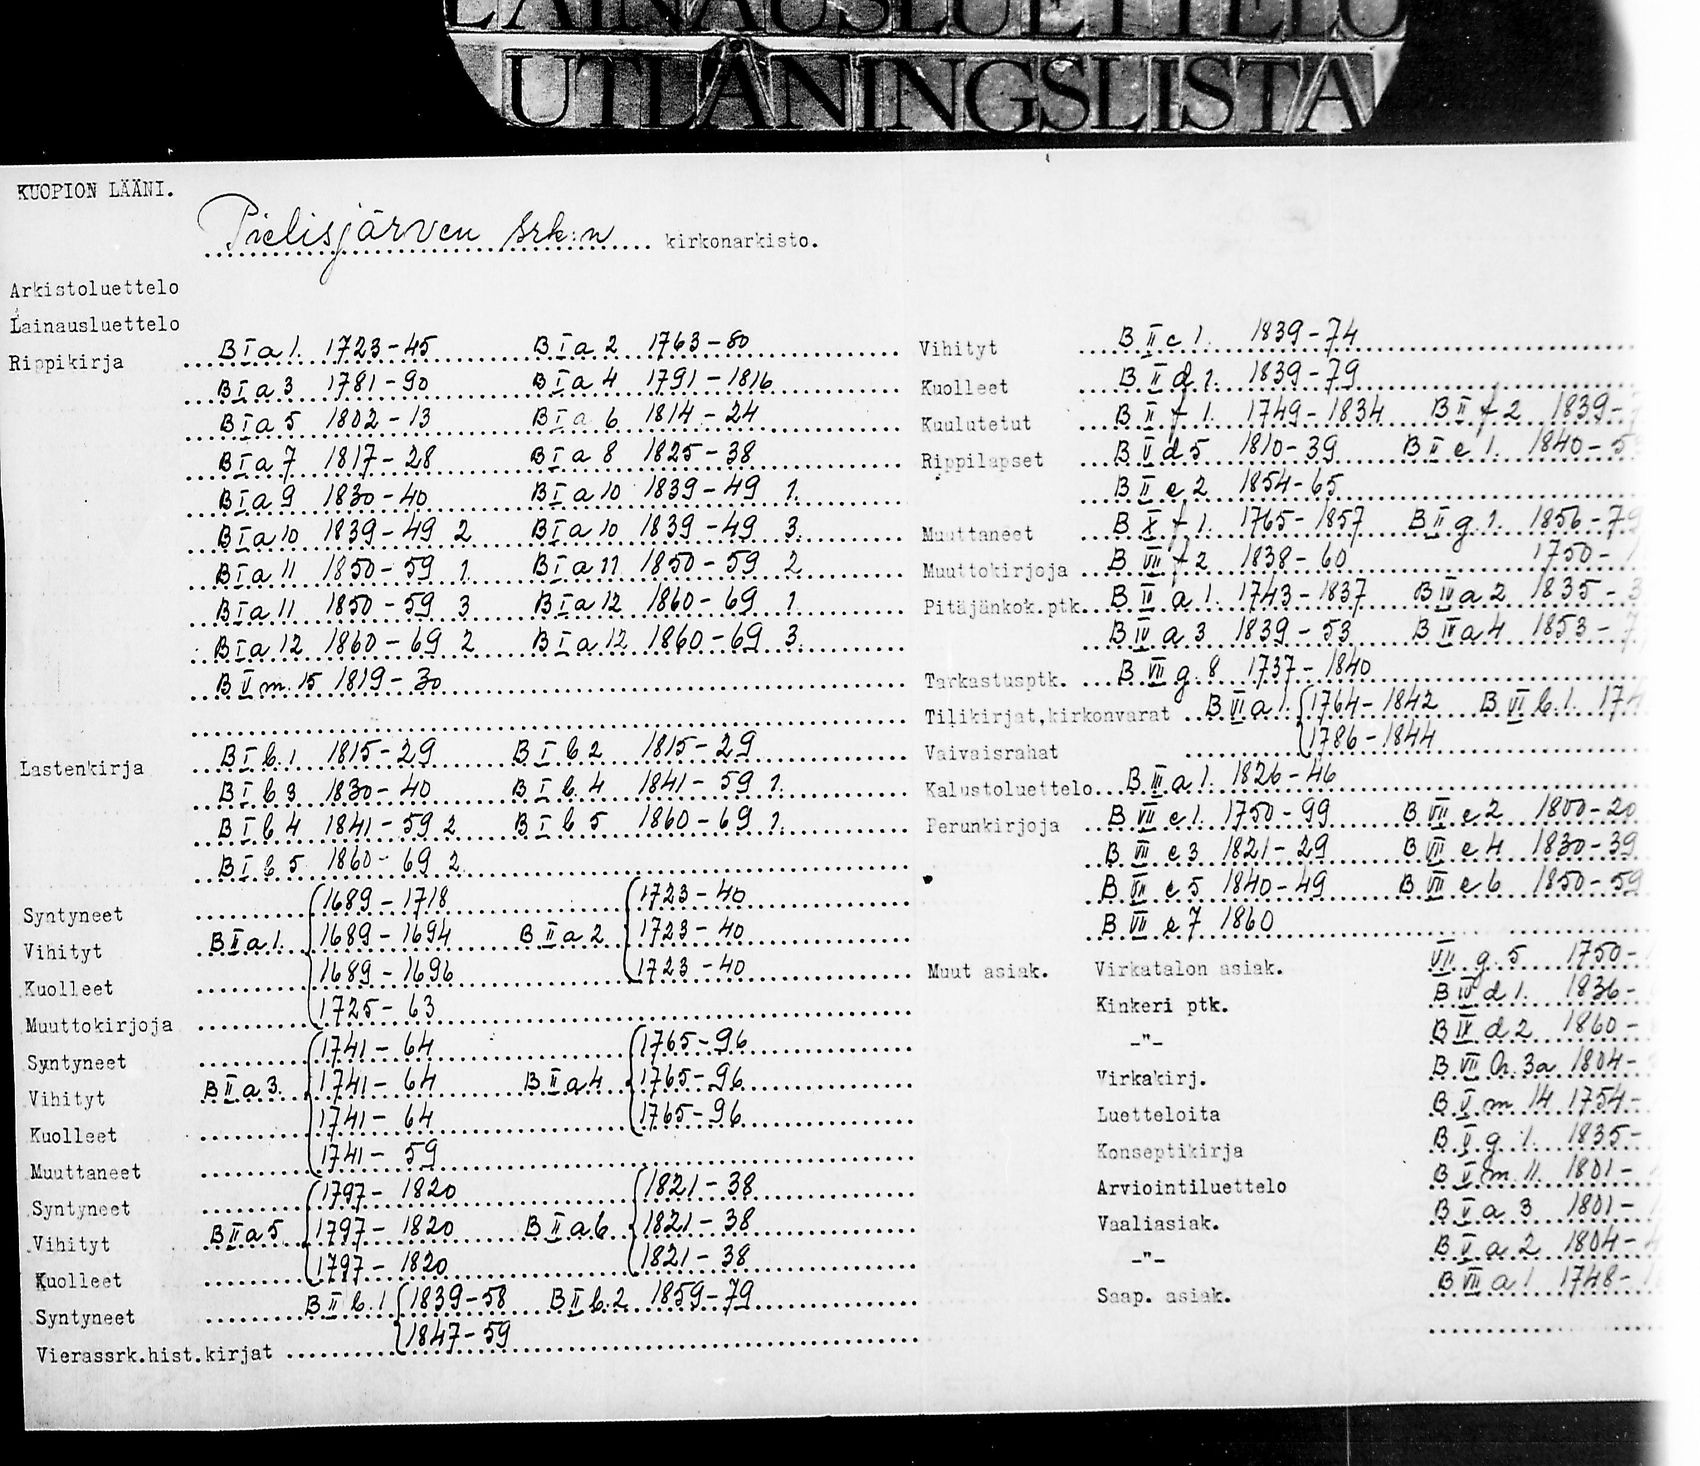 LAINAUSLUETTELO
UTLÅNINGSLISTA
KUOPION LÄÄNI.
Pielisjärven srk:n kirkonarkisto.
Arkistoluettelo
Lainausluettelo
Rippikirja B I a 1. 1723-45 B I a 2 1763-80
B I a 3 1781-90 B I a 4 1791-1816
B I a 5 1802-13 B I a 6 1814-24
B I a 7 1817-28 B I a 8 1825-38
B I a 9 1830-40 B I a 10 1839-49 1.
B I a 10 1839-49 2 B I a 10 1839-49 3.
B I a 11 1850-59 1. B I a 11 1850-59 2
B I a 11 1850-59 3 B I a 12 1860-69 1.
B I a 12 1860-69 2 B I a 12 1860-69 3.
B V m. 15 1819-30
Lastenkirja B I b. 1 1815-29 B I b 2 1815-29
B I b 3 1830-40 B I b. 4 1841-59 1.
B I b 4 1841-59 2 B I b 5 1860-69 1.
B I b 5 1860-69 2
Syntyneet 1689-1718 1723-40
Vihityt B II a 1. 1689-1694 B II a 2 1723-40
Kuolleet 1689-1696 1723-40
Muuttokirjoja 1725-63
Syntyneet 1741-64 1765-96
Vihityt B II a 3. 1741-64 B II a 4 1765-96
Kuolleet 1741-64 1765-96
Muuttaneet 1741-59
Syntyneet 1797-1820 1821-38
Vihityt B II a 5 1797-1820 B II a 6 1821-38
Kuolleet 1797-1820 1821-38
Syntyneet B II b. 1 1839-58 B II b. 2 1859-79
Vierassrk.hist.kirjat 1847-59
Vihityt B II c 1. 1839-74
Kuolleet B II d 1. 1839-79
Kuulutetut B II f 1. 1749-1834 B II f 2 1839-
Rippilapset B V d 5 1810-39 B II e 1. 1840-5
B II e 2 1854-65
Muuttaneet B X f 1. 1765-1857 B II g. 1. 1856-79
Muuttokirjoja B VII f 2 1838-60 1750-
Pitäjänkok.ptk. B IV a 1. 1743-1837 B IV a 2 1835-3
B IV a 3 1839-53 B IV a 4 1853-7
Tarkastusptk. B VII g. 8 1737-1840
Tilikirjat,kirkonvarat B VI a 1. 1764-1842 B VI b. 1. 174
Vaivaisrahat 1786-1844
Kalustoluettelo B III a 1. 1826-46
Perunkirjoja B VII e 1. 1750-99 B VII e 2 1800-20
B VII e 3 1821-29 B VII e 4 1830-39
B VII e 5 1840-49 B VII e 6 1850-59
B VII e 7 1860
Muut asiak. Virkatalon asiak. VII g. 5 1750-
Kinkeri ptk. B IV d 1. 1836-
-"- B IX d 2 1860-
Virkakirj. B VII h. 3a 1804-
Luetteloita B V m 14 1754-
Konseptikirja B V g. 1. 1835-
Arviointiluettelo B V m 11. 1801-
Vaaliasiak. B V a 3 1801-
-"- B V a 2 1804-4
Saap. asiak. B VII a 1 1748-